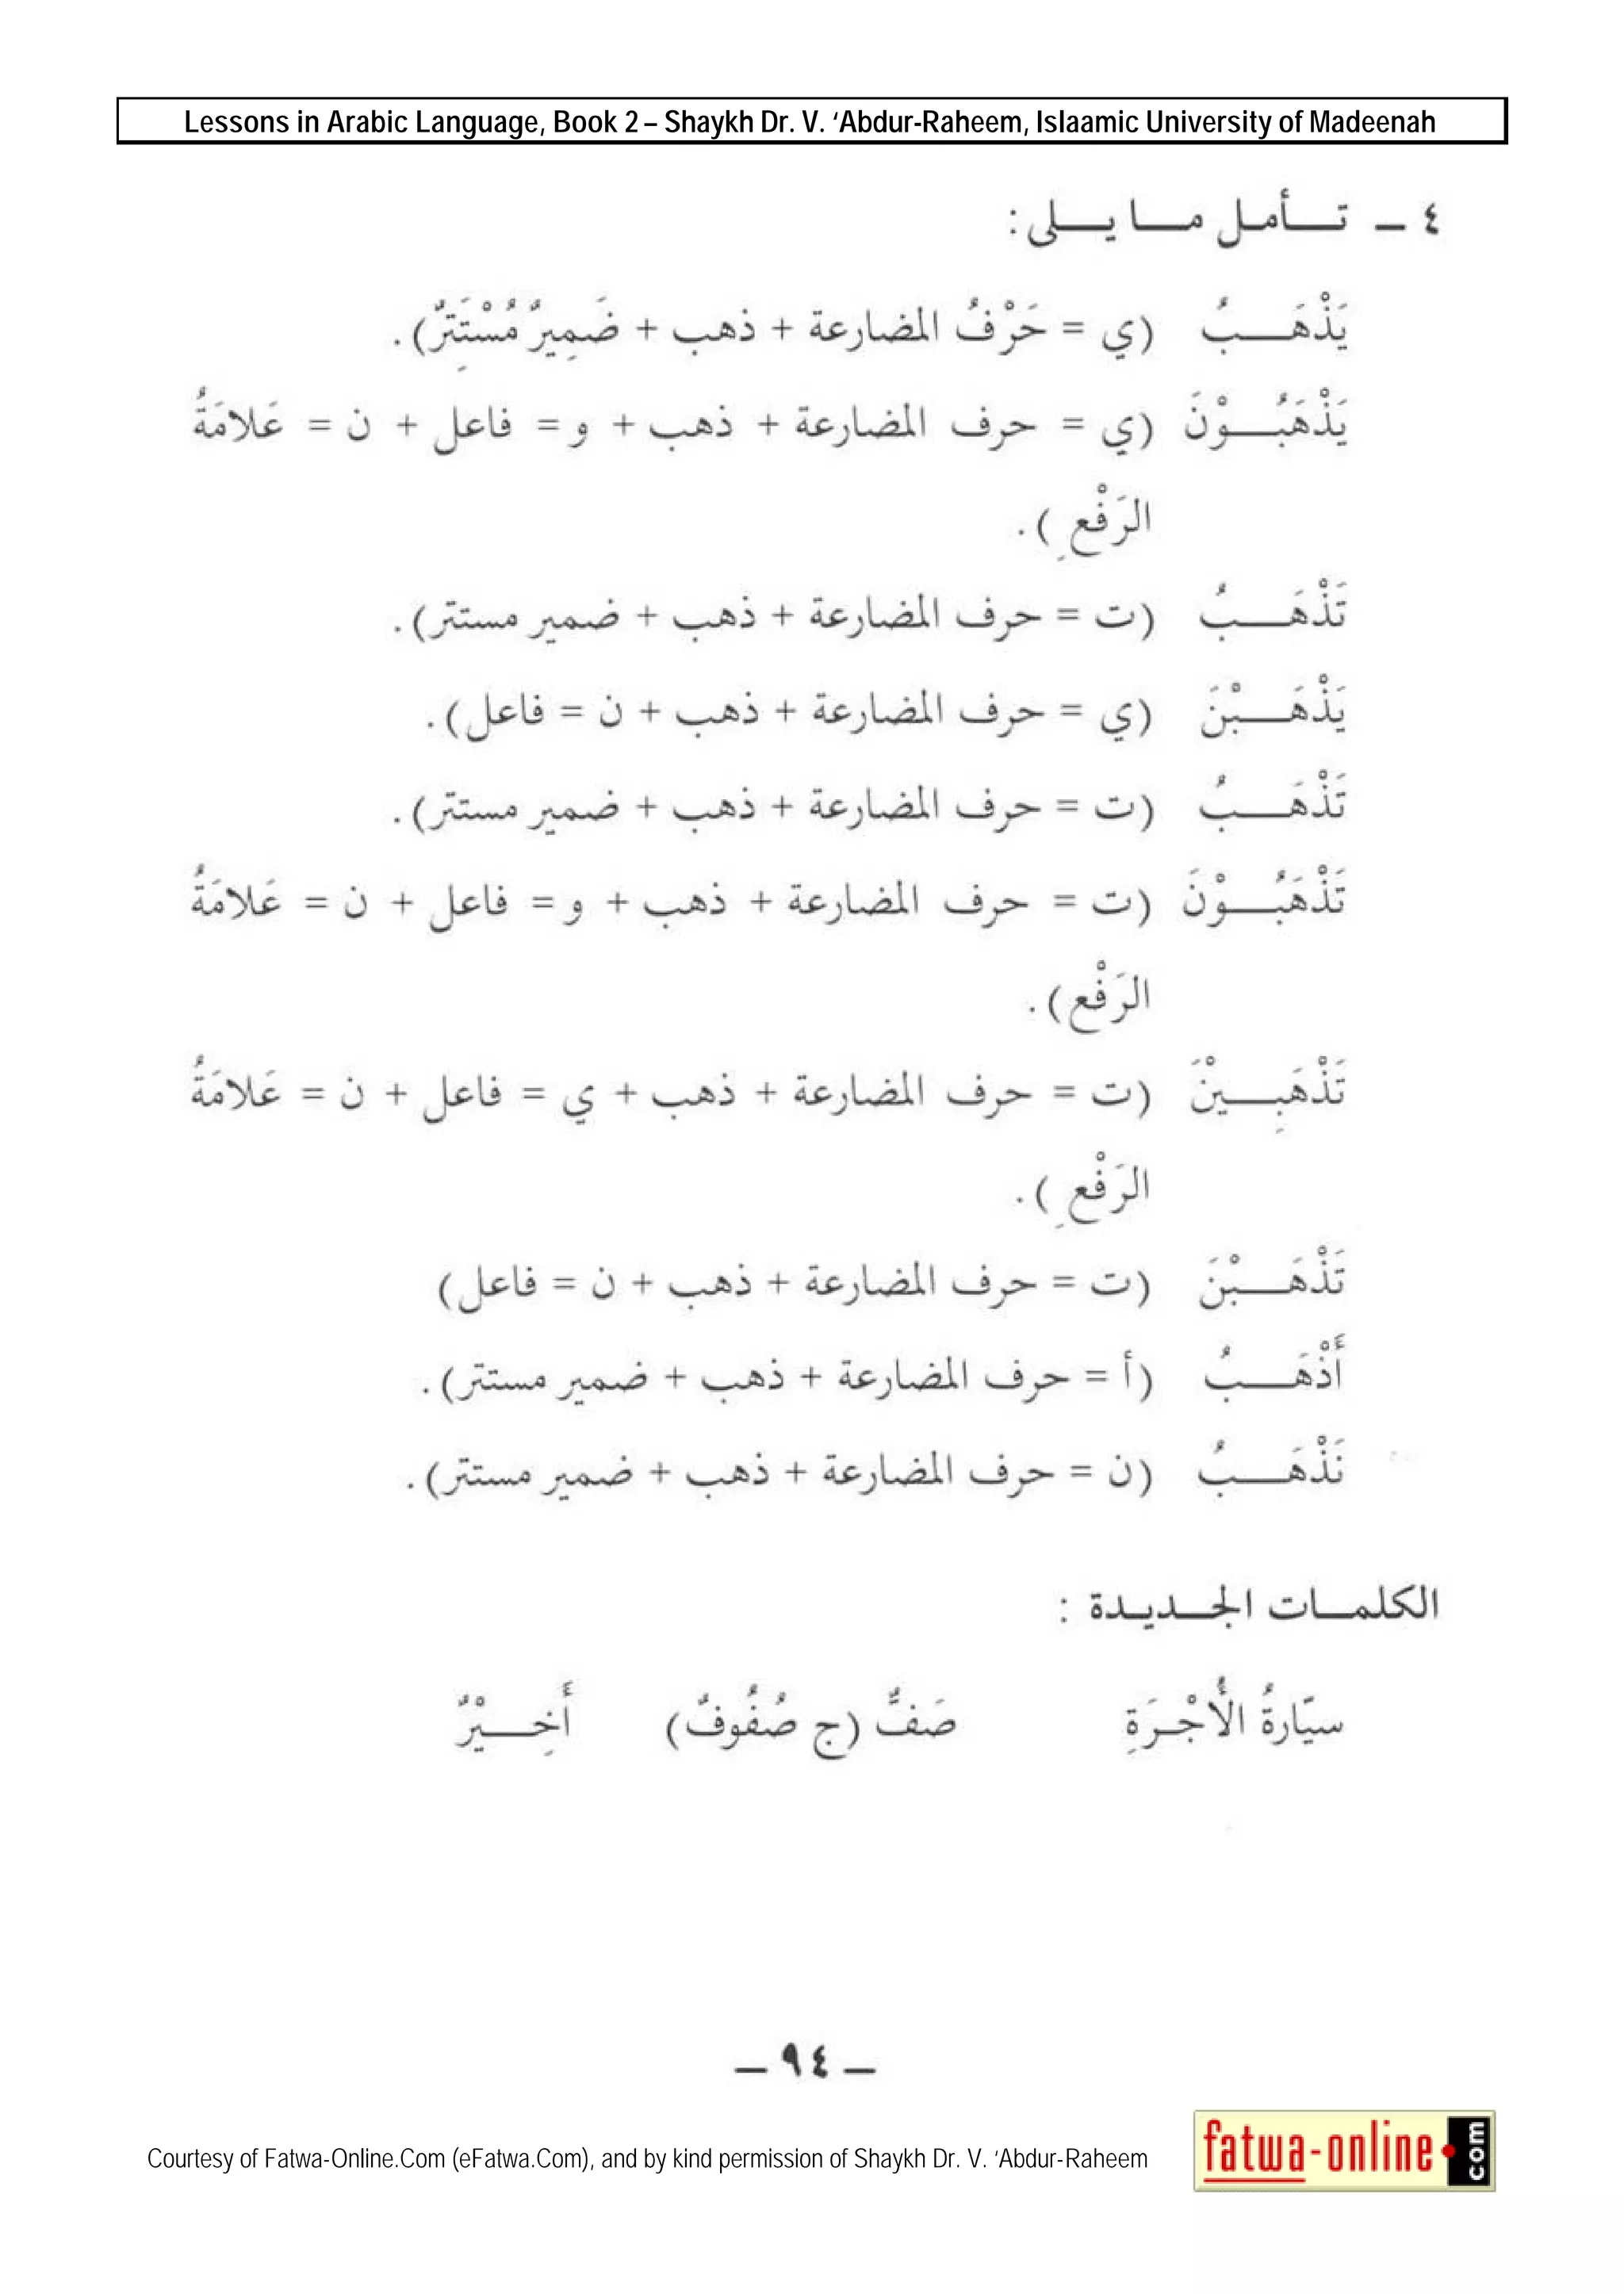 Lessons in Arabic Language, Book 2 – Shaykh Dr. V. ‘Abdur-Raheem, Islaamic University of Madeenah
٤ – تأمل ما يلى:
يَذْهَبُ (ي = حَرْفُ المضارعة + ذهب + ضَمِيرٌ مُسْتَتِرٌ).
يَذْهَبُوْنَ (ي = حرف المضارعة + ذهب + و = فاعل + ن = عَلامَةُ
الرَفْعِ).
تَذْهَبُ (ت = حرف المضارعة + ذهب + ضمير مستتر).
يَذْهَبْنَ (ي = حرف المضارعة + ذهب + ن = فاعل).
تَذْهَبُ (ت = حرف المضارعة + ذهب + ضمير مستتر).
تَذْهَبُوْنَ (ت = حرف المضارعة + ذهب + و = فاعل + ن = عَلامَةُ
الرَفْع).
تَذْهَبِيْنَ (ت = حرف المضارعة + ذهب + ي = فاعل + ن = عَلامَةُ
الرَفْعِ).
تَذْهَبْنَ (ت = حرف المضارعة + ذهب + ن = فاعل)
أَذْهَبُ (أ = حرف المضارعة + ذهب + ضمير مستتر).
نَذْهَبُ (ن = حرف المضارعة + ذهب + ضمير مستتر).
الكلمات الجديدة :
سيّارةُ الأُجْرَةِ صَفٌّ (ج صُفُوفٌ) أَخِيْرٌ
– ٩٤ –
Courtesy of Fatwa-Online.Com (eFatwa.Com), and by kind permission of Shaykh Dr. V. ‘Abdur-Raheem
fatwa-online.com